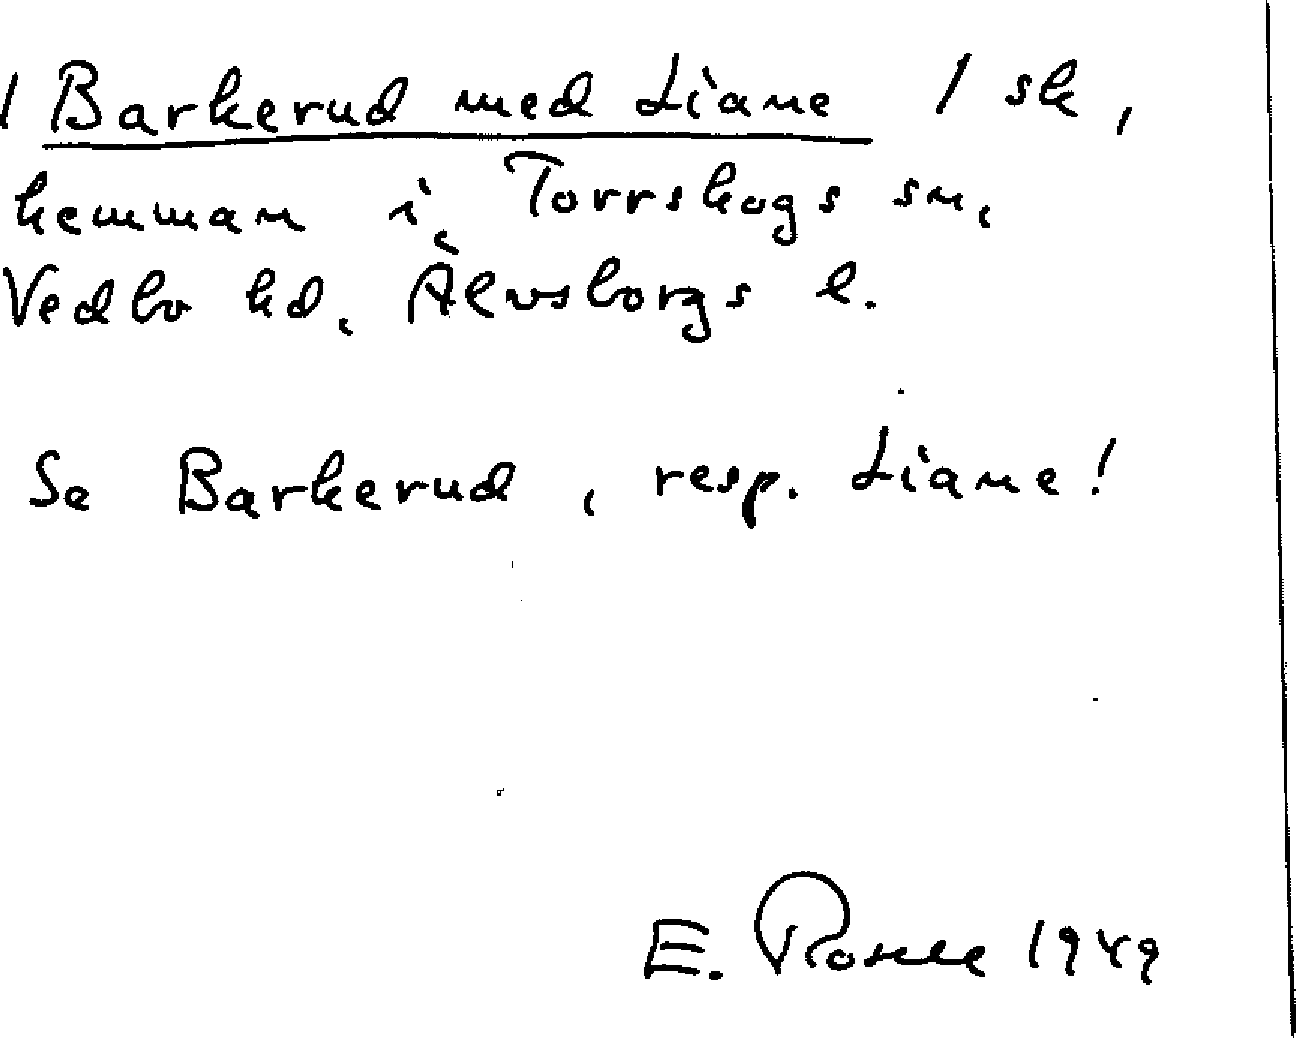 1 Barkerud med Liane 1 sk,
hemman i Torrskogs sn,
Vedbo hd, Älvsborgs l.
Se Barkerud, resp. Liane!
E. Rosell 1949